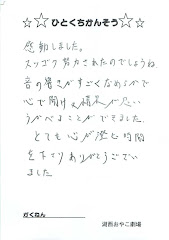 ☆☆ひとくちかんそう☆☆
感動しました。
スッゴク努力されたのでしょうね
音の響きがすごくなめらかで
心で聞け 積木が思い
うかべることができました。
とても心が澄む時間
を下さりありがとうござい
ました
がくねん
湖西おやこ劇場